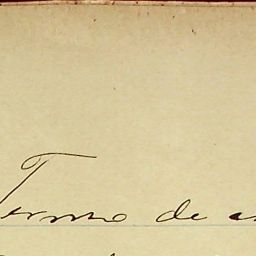 Termo de